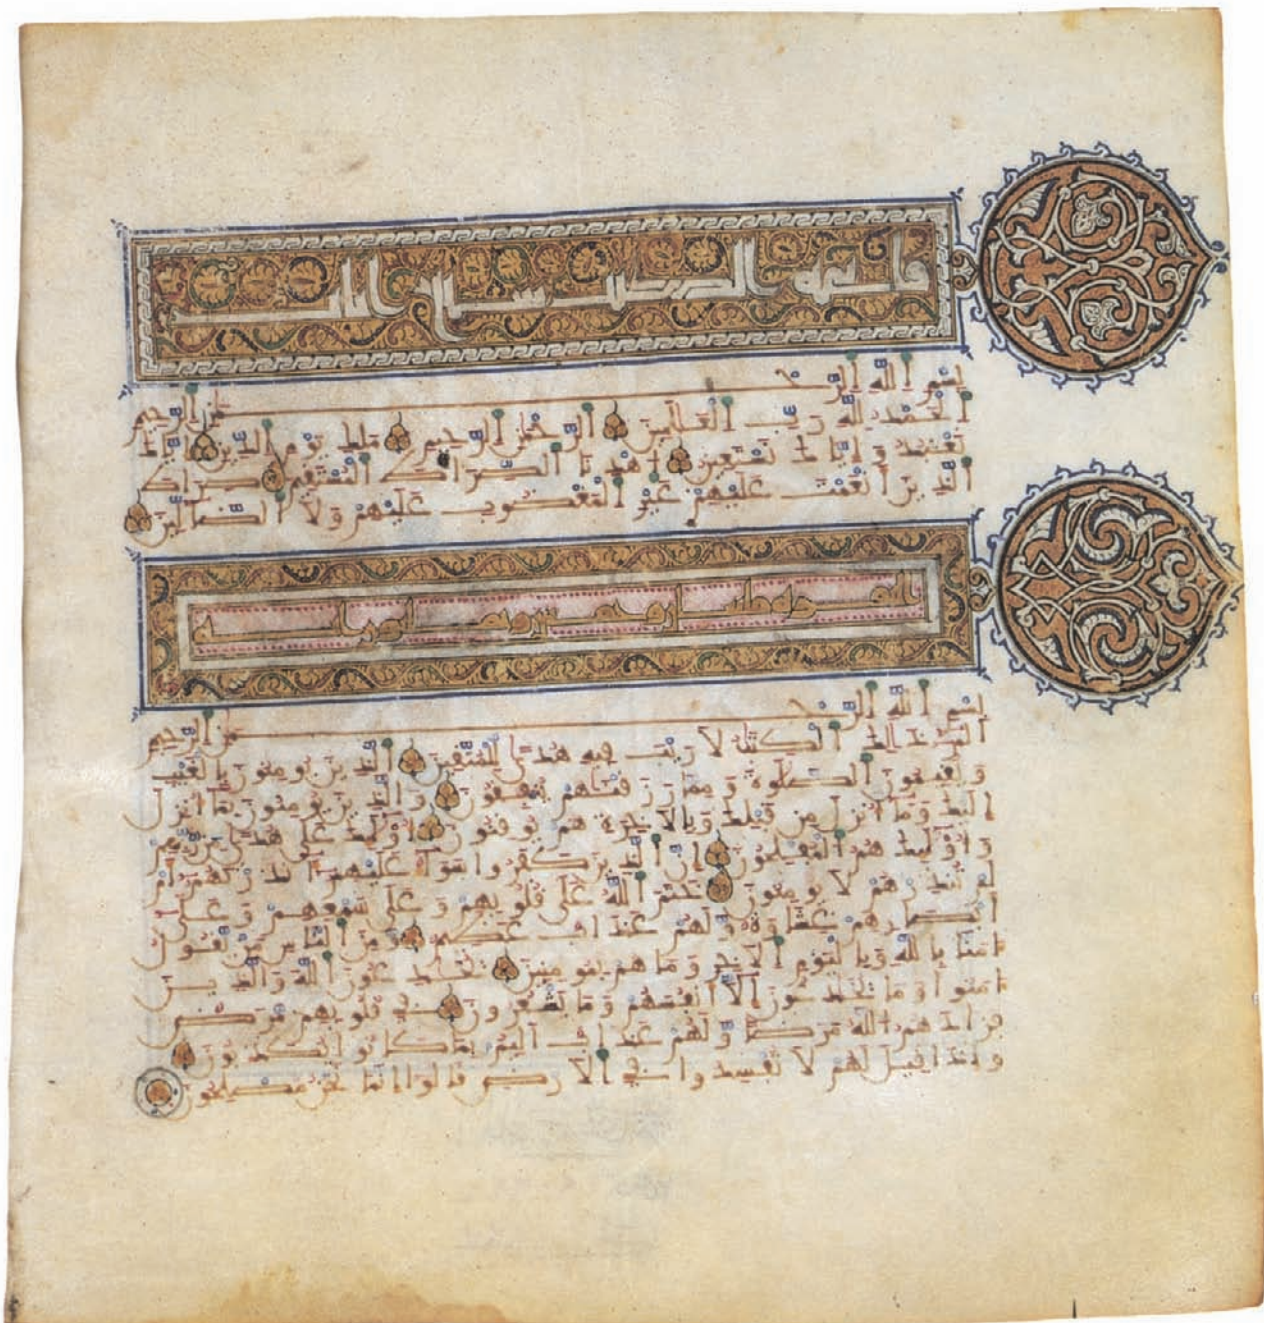 فاتحة الكتاب سبع ايات
بسم الله الرحمن الرحيم
الحمد لله رب العلمين الرحمن الرحيم ملك يوم الدين اياك
نعبد واياك نستعين اهدنا الصراط المستقيم صراط
الذين انعمت عليهم غير المغضوب عليهم ولا الضالين
البقرة
بسم الله الرحمن الرحيم
الم ذلك الكتب لا ريب فيه هدى للمتقين الذين يومنون بالغيب
ويقيمون الصلوة ومما رزقنهم ينفقون والذين يومنون بما انزل
اليك وما انزل من قبلك وبالاخرة هم يوقنون اوليك على هدى من ربهم
واوليك هم المفلحون ان الذين كفروا سواء عليهم ءانذرتهم ام
لم تنذرهم لا يومنون ختم الله على قلوبهم وعلى سمعهم وعلى
ابصرهم غشوة ولهم عذاب عظيم ومن الناس من يقول
ءامنا بالله وباليوم الاخر وما هم بمومنين يخدعون الله والذين
ءامنوا وما يخدعون الا انفسهم وما يشعرون في قلوبهم مرض
فزادهم الله مرضا ولهم عذاب اليم بما كانوا يكذبون
واذا قيل لهم لا تفسدوا في الارض قالوا انما نحن مصلحون